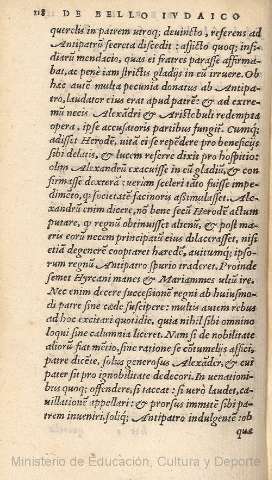 118 DE BELLO IVDAICO
querelis in patrem utroq; deuincto, referens ad
Antipatrũ secreta discedit: adiecto quoq; insi-
diarũ mendacio, quas ei fratres parasse affirma-
bat, ac penè iam strictis gladijs in eũ irruere. Ob
hæc autẽ multa pecunia donatus ab Antipa-
tro, laudator eius erat apud patrẽ: & ad extre-
mũ necis Alexãdri & Aristobuli redempta
opera, ipse accusatoris partibus fungit. Cumq;
adisset Herodẽ, uitã ei se rependere pro beneficijs
sibi delatis, & lucem referre dixit pro hospitio:
olim Alexandrũ exacuisse in eũ gladiũ, & con-
firmasse dexterã: uerum sceleri idẽo fuisse impe-
dimẽto, q̃ societatẽ facinoris assimulasset. Ale-
xandrũ enim dicere, nõ bene secũ Herodẽ actum
putare, q̃ regnũ obtinuisset alienũ, & post ma-
tris eorũ necem principatũ eius dilacerasset, nisi
etiã degenerẽ cooptaret haredẽ, auitumq; ipso-
rum regnũ Antipatro spurio traderet. Proinde
semet Hyrcani manes & Mariammes ultũ ire.
Nec enim decere successionẽ regni ab huiusmo-
di patre sine cæde suscipere: multis autem rebus
ad hoc excitari quotidie, quia nihil sibi omnino
loqui sine calumnia liceret. Nam si de nobilitate
aliorũ fiat mẽtio, sine ratione se cõtumelijs affici,
patre dicẽte, solus generosus Alexãder, & cui
pater sit pro ignobilitate dedecori. In uenationi-
bus quoq; offendere, si taceat: si uerò laudet, ca-
uillationẽ appellari: & prorsus immitẽ sibi pa-
trem inueniri, soliq; Antipatro indulgentẽ: ob
quæ
Ministerio de Educación, Cultura y Deporte